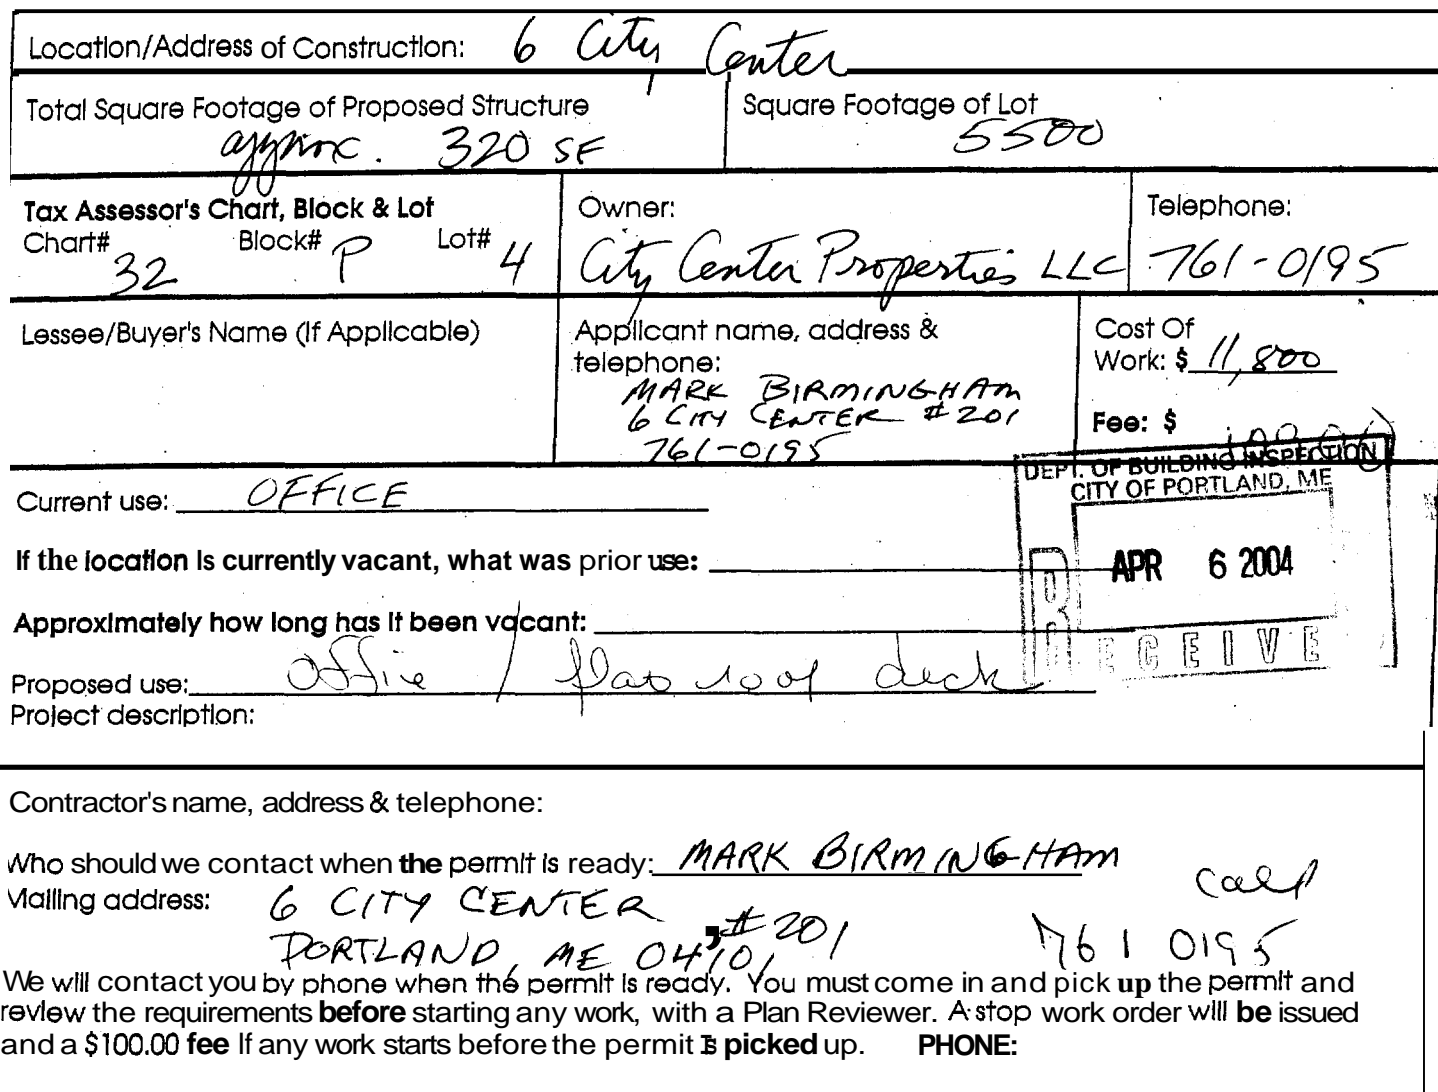 Location/Address of Construction: 6 City Center
Total Square Footage of Proposed Structure
approx. 320 SF
Square Footage of Lot
5500
Tax Assessor's Chart, Block & Lot
Chart# 32 Block# P Lot# 4
Owner:
City Center Properties LLC
Telephone:
761-0195
Lessee/Buyer's Name (If Applicable)
Applicant name, address &
telephone:
MARK BIRMINGHAM
6 CITY CENTER #201
761-0195
Cost Of
Work: $ 11,800
Fee: $
DEPT. OF BUILDING INSPECTION
CITY OF PORTLAND, ME
APR 6 2004
RECEIVE
Current use: OFFICE
If the location is currently vacant, what was prior use:
Approximately how long has it been vacant:
Proposed use: Office / flat roof deck
Project description:
Contractor's name, address & telephone:
Who should we contact when the permit is ready: MARK BIRMINGHAM
Mailing address: 6 CITY CENTER, #201
PORTLAND, ME 04101
Call
761 0195
We will contact you by phone when the permit is ready. You must come in and pick up the permit and
review the requirements before starting any work, with a Plan Reviewer. A stop work order will be issued
and a $100.00 fee If any work starts before the permit is picked up. PHONE: